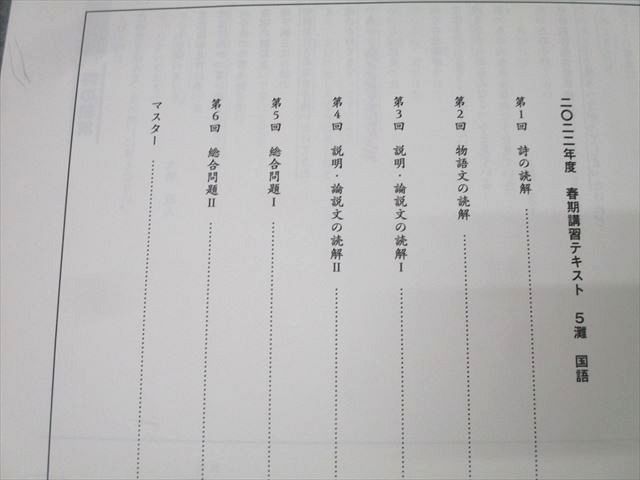 二〇二二年度 春期講習テキスト 5灘 国語
第1回 詩の読解
第2回 物語文の読解
第3回 説明・論説文の読解Ⅰ
第4回 説明・論説文の読解Ⅱ
第5回 総合問題Ⅰ
第6回 総合問題Ⅱ
マスター